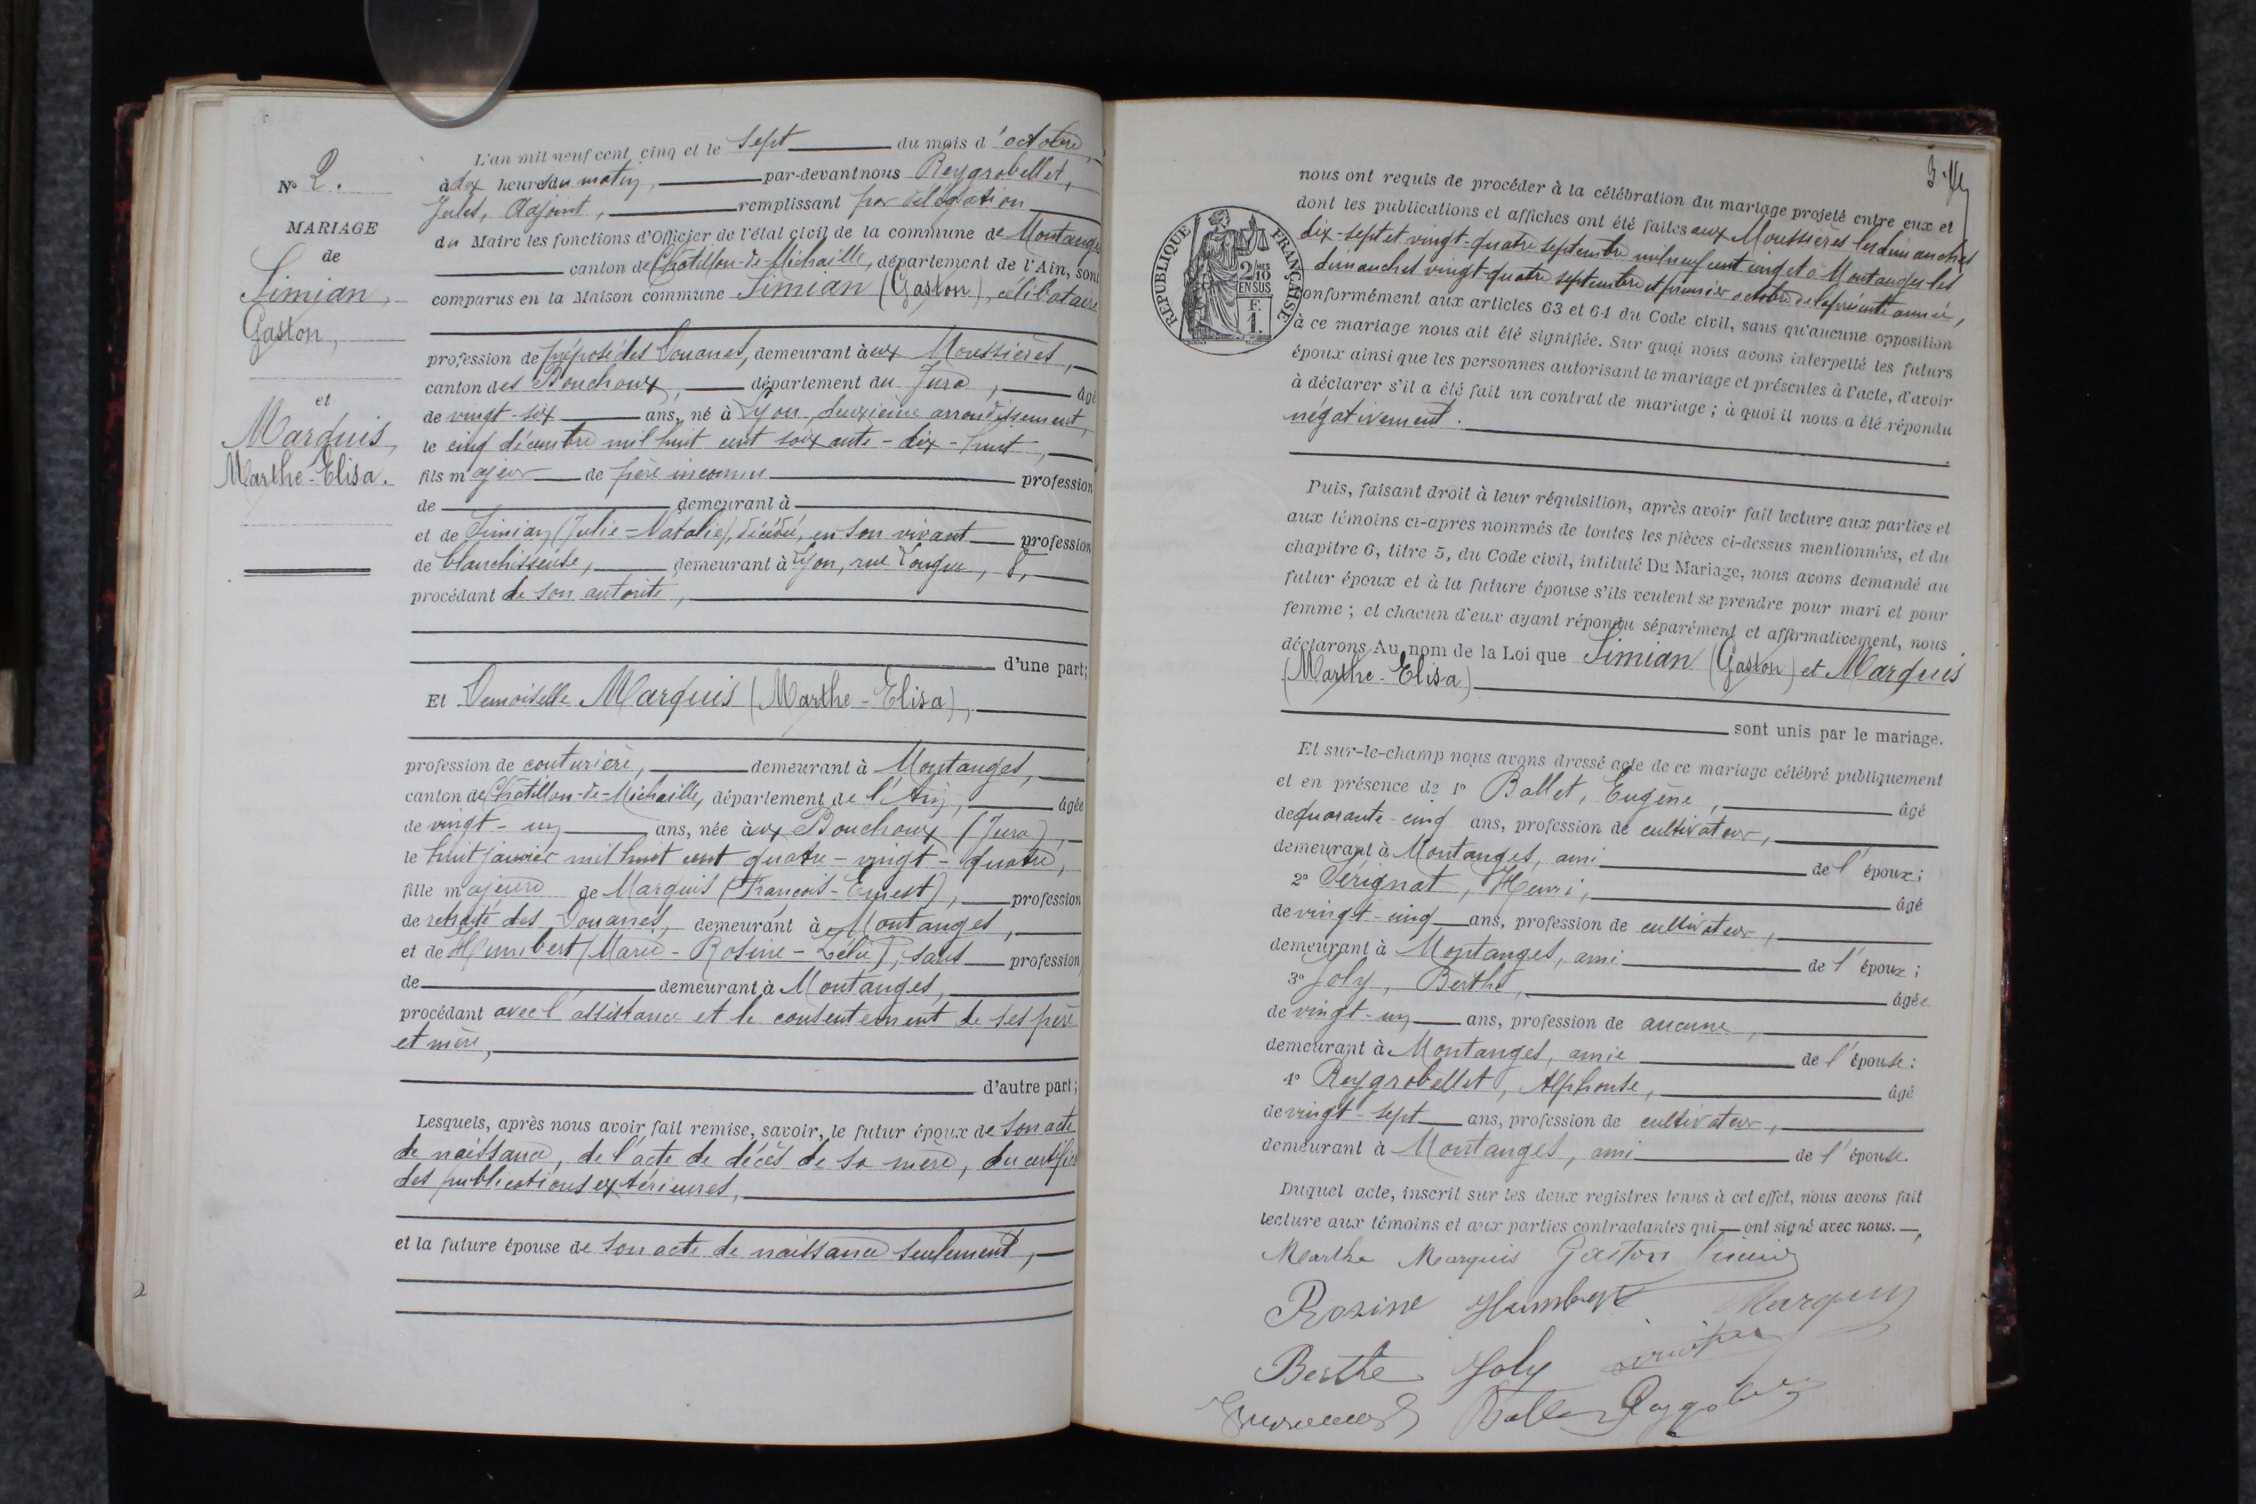 N° 2.
MARIAGE
de
Simian,
Gaston,
et
Marquis,
Marthe-Elisa.
L'an mil neuf cent cinq et le sept du mois d'octobre,
à dix heures du matin, par-devant nous Reygrobellet,
Jules, Adjoint, remplissant par délégation
du Maire les fonctions d'Officier de l'état civil de la commune de Montanges
canton de Châtillon-de-Michaille, département de l'Ain, sont
comparus en la Maison commune Simian (Gaston), célibataire
profession de préposé des Douanes, demeurant à aux Moussières,
canton des Bouchoux, département du Jura, âgé
de vingt-six ans, né à Lyon, deuxième arrondissement,
le cinq décembre mil huit cent soixante-dix-huit,
fils majeur de père inconnu profession
de demeurant à
et de Simian (Julie=Natalie), décédée, en son vivant profession
de blanchisseuse, demeurant à Lyon, rue Longue, 8,
procédant de son autorité,
d'une part;
Et Demoiselle Marquis (Marthe-Elisa),
profession de couturière, demeurant à Montanges,
canton de Châtillon-de-Michaille, département de l'Ain, âgée
de vingt-un ans, née à aux Bouchoux (Jura),
le huit janvier mil huit cent quatre-vingt-quatre,
fille majeure de Marquis (François-Ernest), profession
de retraité des Douanes, demeurant à Montanges,
et de Humbert (Marie-Rosine-Zélie), sans profession
de demeurant à Montanges,
procédant avec l'assistance et le consentement de ses père
et mère,
d'autre part;
Lesquels, après nous avoir fait remise, savoir, le futur époux de son acte
de naissance, de l'acte de décès de sa mère, du certificat
des publications extérieures,
et la future épouse de son acte de naissance seulement,
2
3
nous ont requis de procéder à la célébration du mariage projeté entre eux et
dont les publications et affiches ont été faites aux Moussières les dimanches
dix-sept et vingt-quatre septembre mil neuf cent cinq et à Montanges les
dimanches vingt-quatre septembre et premier octobre de la présente année,
RÉPUBLIQUE FRANÇAISE
2/10
EN SUS
F.
1.
conformément aux articles 63 et 64 du Code civil, sans qu'aucune opposition
à ce mariage nous ait été signifiée. Sur quoi nous avons interpellé les futurs
époux ainsi que les personnes autorisant le mariage et présentes à l'acte, d'avoir
à déclarer s'il a été fait un contrat de mariage; à quoi il nous a été répondu
négativement.
Puis, faisant droit à leur réquisition, après avoir fait lecture aux parties et
aux témoins ci-après nommés de toutes les pièces ci-dessus mentionnées, et du
chapitre 6, titre 5, du Code civil, intitulé Du Mariage, nous avons demandé au
futur époux et à la future épouse s'ils veulent se prendre pour mari et pour
femme; et chacun d'eux ayant répondu séparément et affirmativement, nous
déclarons Au nom de la Loi que Simian (Gaston) et Marquis
(Marthe-Elisa)
sont unis par le mariage.
Et sur-le-champ nous avons dressé acte de ce mariage célébré publiquement
et en présence de 1° Ballet, Eugène, âgé
de quarante-cinq ans, profession de cultivateur,
demeurant à Montanges, ami de l'époux;
2° Sérignat, Henri, âgé
de vingt-cinq ans, profession de cultivateur,
demeurant à Montanges, ami de l'époux;
3° Joly, Berthe, âgée
de vingt-un ans, profession de aucune,
demeurant à Montanges, amie de l'épouse;
4° Reygrobellet, Alphonse, âgé
de vingt-sept ans, profession de cultivateur,
demeurant à Montanges, ami de l'épouse.
Duquel acte, inscrit sur les deux registres tenus à cet effet, nous avons fait
lecture aux témoins et aux parties contractantes qui ont signé avec nous.
Marthe Marquis Gaston Simian
Rosine Humbert Marquis
Berthe Joly
Ballet